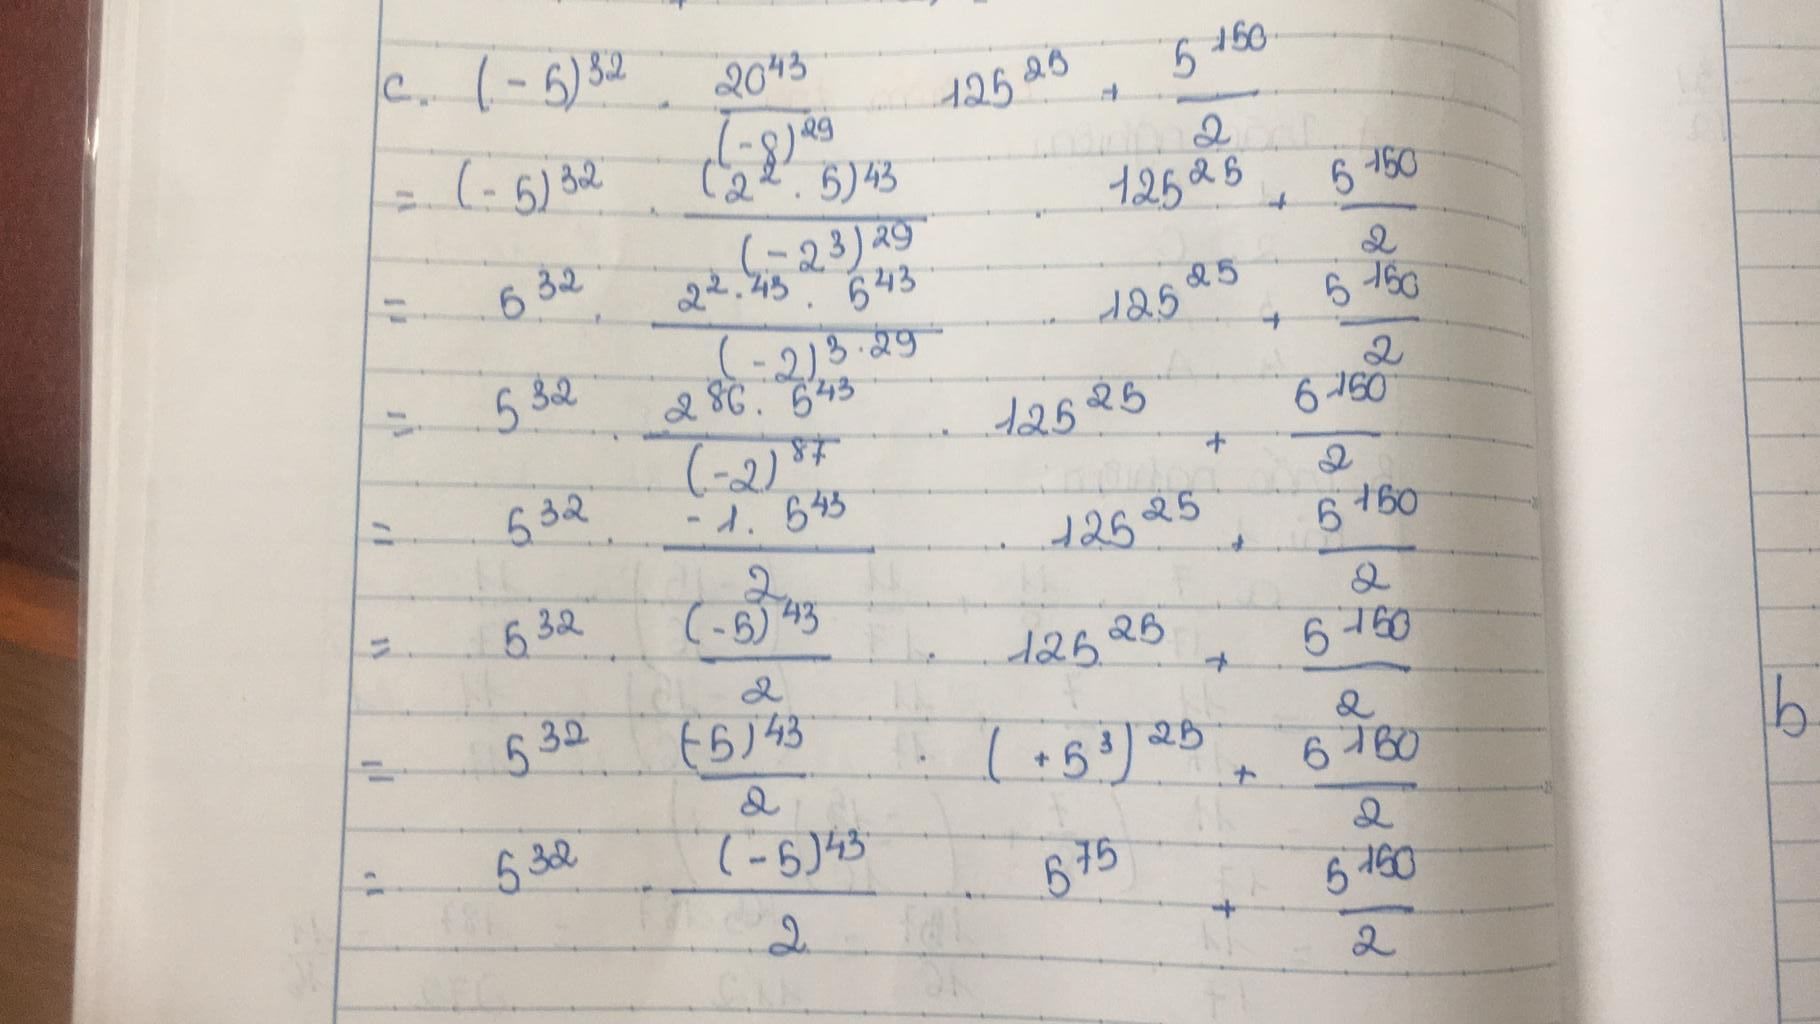 c. (-5)^32 . 20^43/(-8)^29 125^25 + 5^150/2
= (-5)^32 . (2^2 . 5)^43/(-2^3)^29 . 125^25 + 5^150/2
= 5^32 . 2^2.43 . 5^43/(-2)^3.29 . 125^25 + 5^150/2
= 5^32 . 2^86 . 5^43/(-2)^87 . 125^25 + 5^150/2
= 5^32 . -1. 5^43/2 . 125^25 + 5^150/2
= 5^32 . (-5)^43/2 . 125^25 + 5^150/2
= 5^32 . (-5)^43/2 . (+5^3)^25 + 5^150/2
= 5^32 . (-5)^43/2 . 5^75 + 5^150/2
b